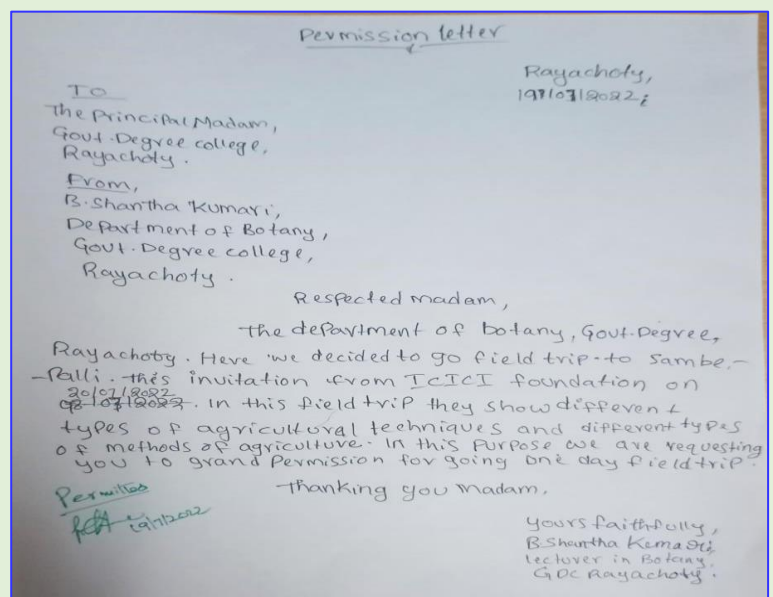 Permission letter
Rayachoty,
19/07/2022;
TO
The Principal Madam,
Govt. Degree college,
Rayachoty.
From,
B. Shantha Kumari,
Department of Botany,
Govt. Degree college,
Rayachoty.
Respected madam,
The department of botany, Govt. Degree,
Rayachoty. Here we decided to go field trip to Sambe-
-Palli. this invitation from ICICI foundation on
20/07/2022
. In this field trip they show different
types of agricultural techniques and different types
of methods of agriculture. In this Purpose we are requesting
you to grand Permission for going one day field trip.
Thanking you Madam.
Permitted
19/7/2022
yours faithfully,
B. Shantha Kumari,
lecturer in Botany,
GDC Rayachoty.